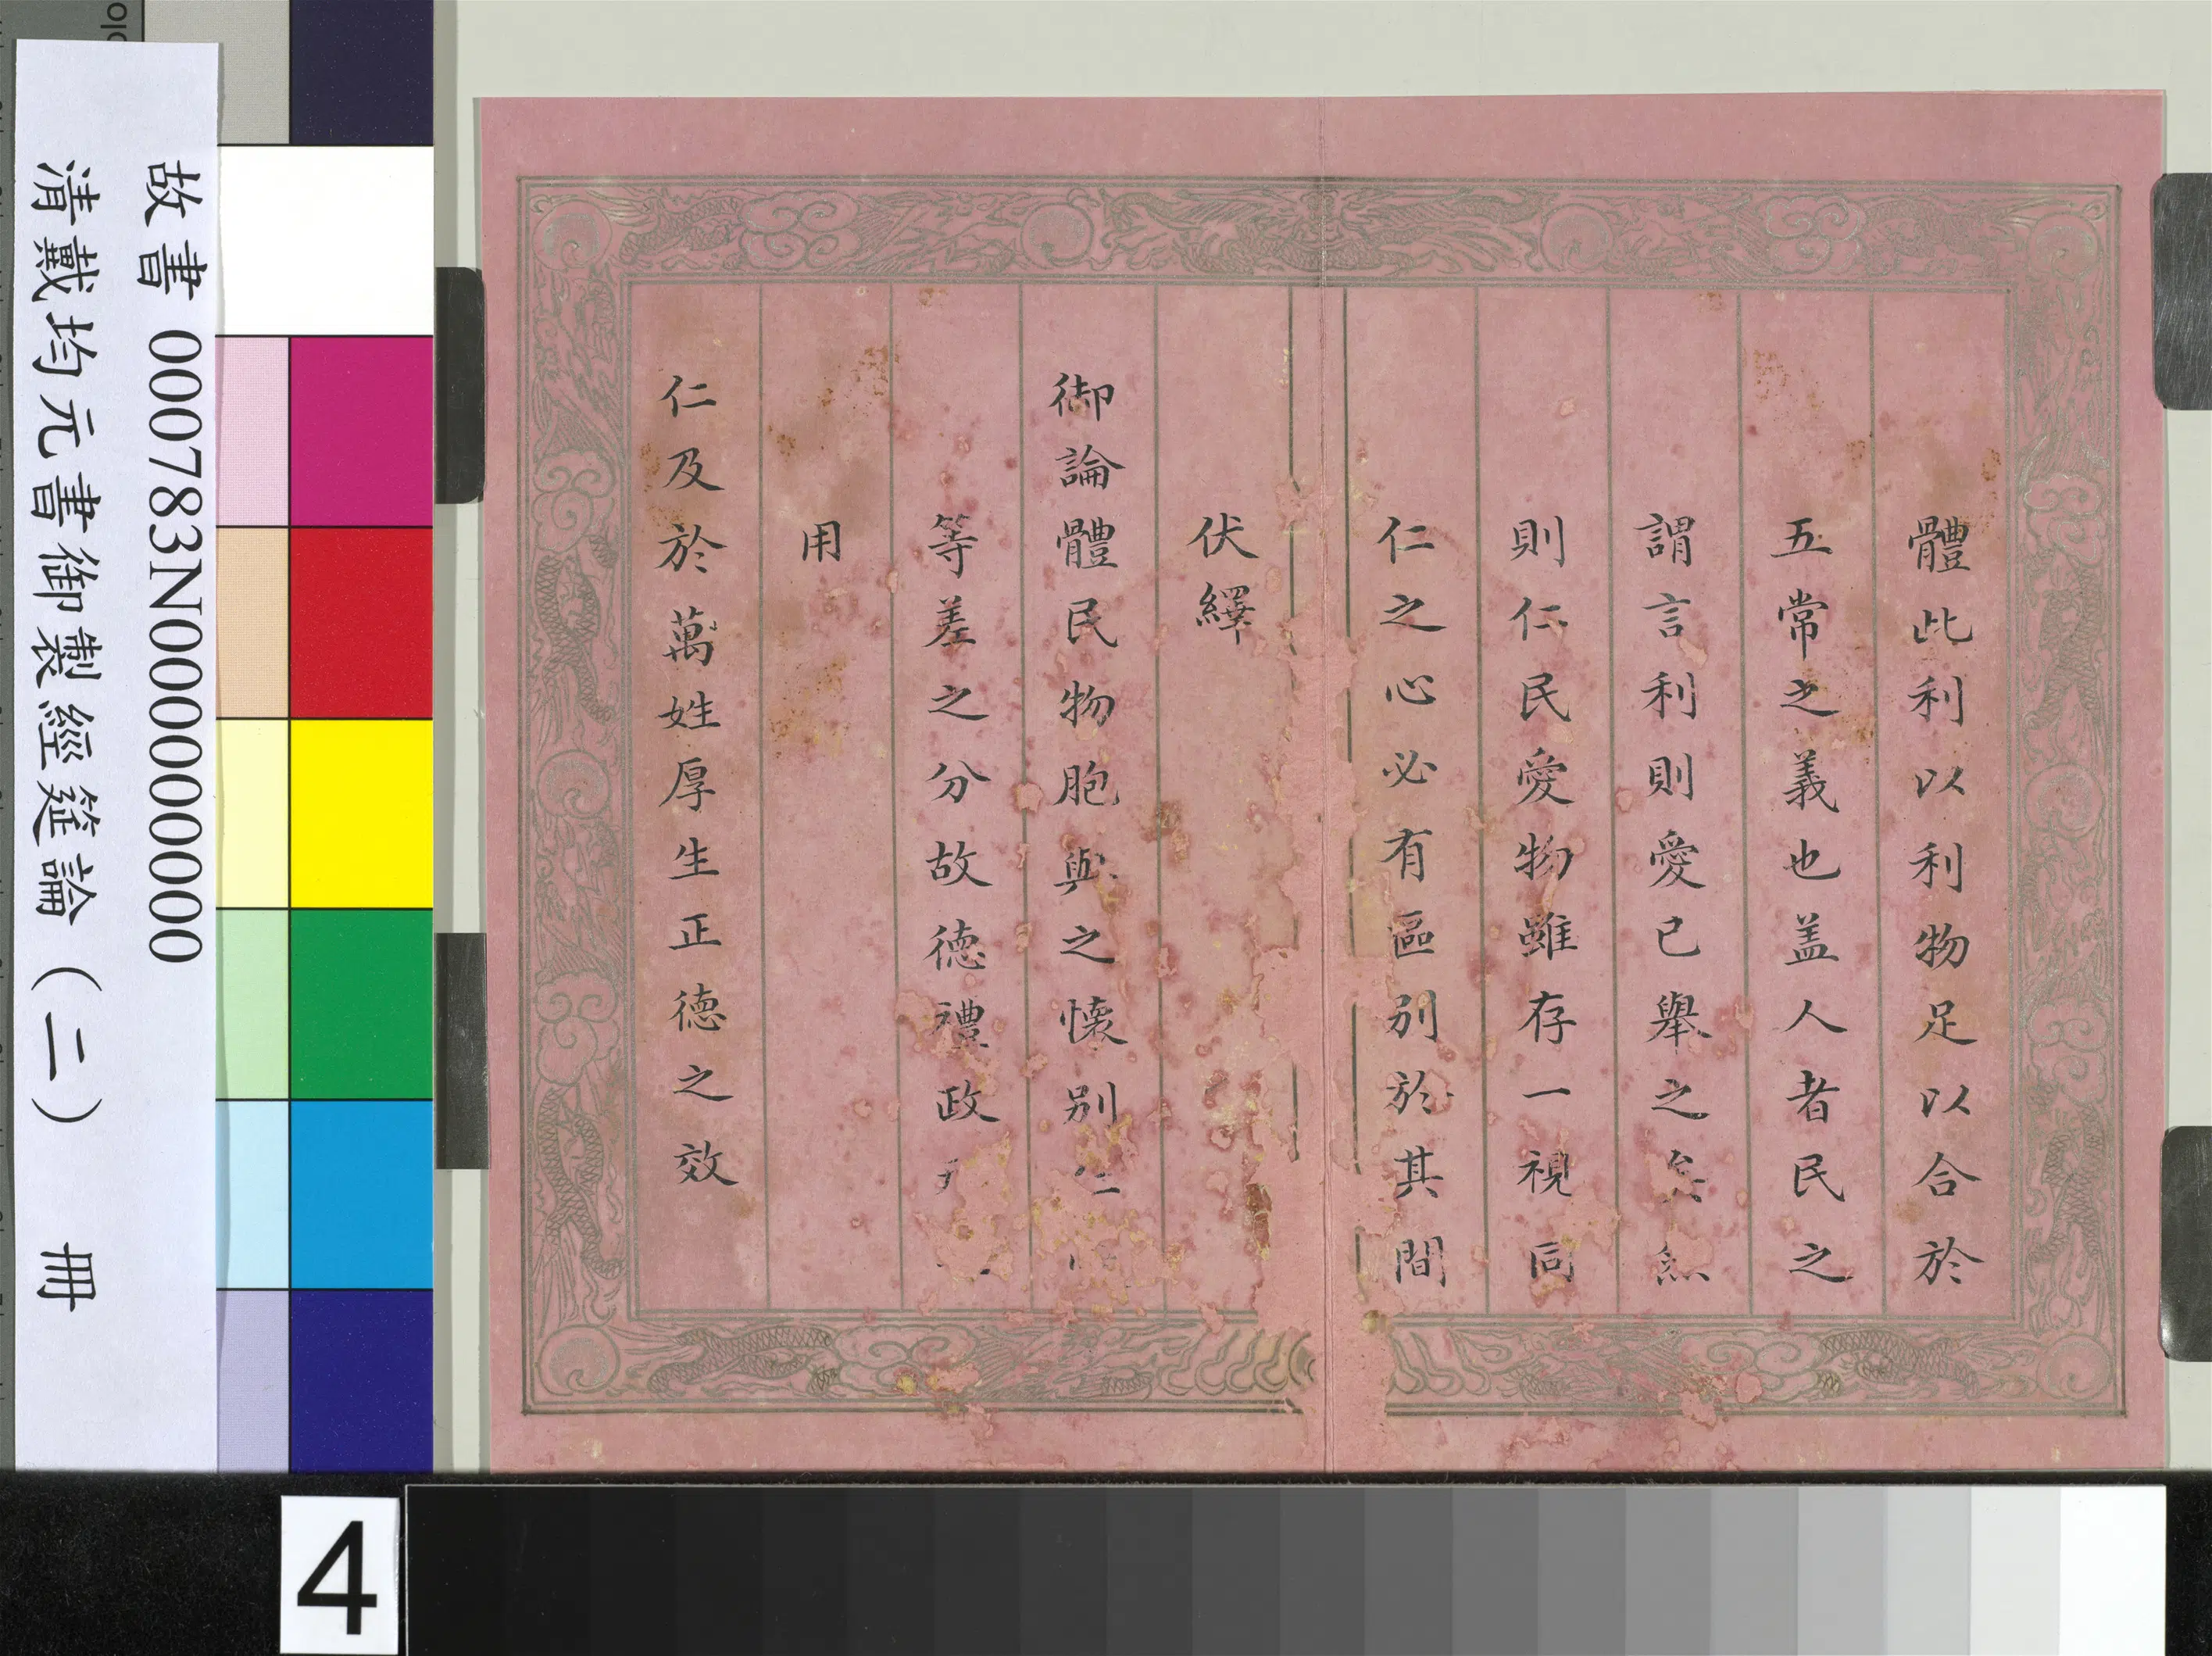 體此利以利物足以合於
五常之義也盖人者民之
謂言利則愛已舉之矣然
則仁民愛物雖存一視同
仁之心必有區别於其間
伏繹
御論體民物胞與之懷别仁
等差之分故德禮政
用
仁及於萬姓厚生正德之效
故書 000783N000000000
清戴均元書御製經筵論（二） 冊
4